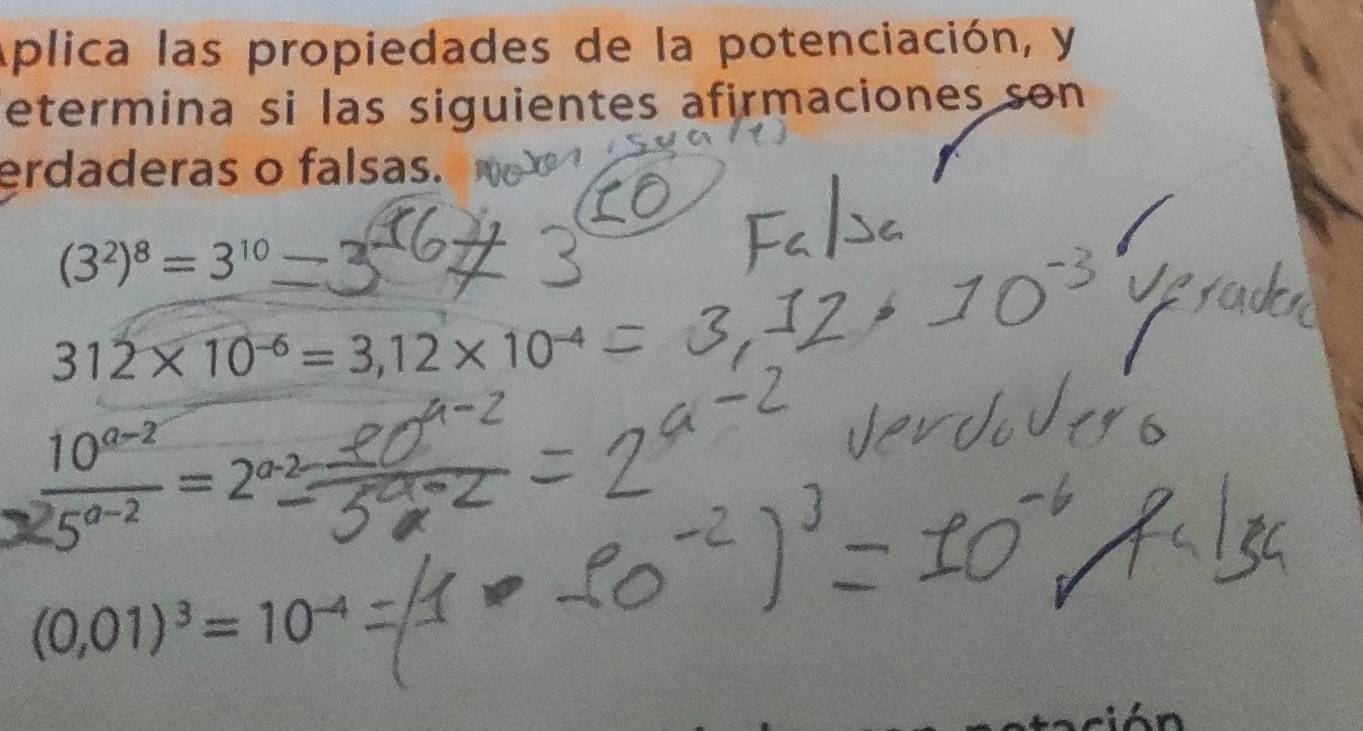 plica las propiedades de la potenciación, y
etermina si las siguientes afirmaciones son
erdaderas o falsas.
(3²)⁸ = 3¹⁰ = 3¹⁶ ≠ 3¹⁰ Falsa
312 × 10⁻⁶ = 3,12 × 10⁻⁴ = 3,12 · 10⁻³ Veradero
10ᵃ⁻²/5ᵃ⁻² = 2ᵃ⁻² = 10ᵃ⁻²/5ᵃ⁻² = 2ᵃ⁻² Verdadero
(0,01)³ = 10⁻⁴ = (1 · 10⁻²)³ = 10⁻⁶ falsa